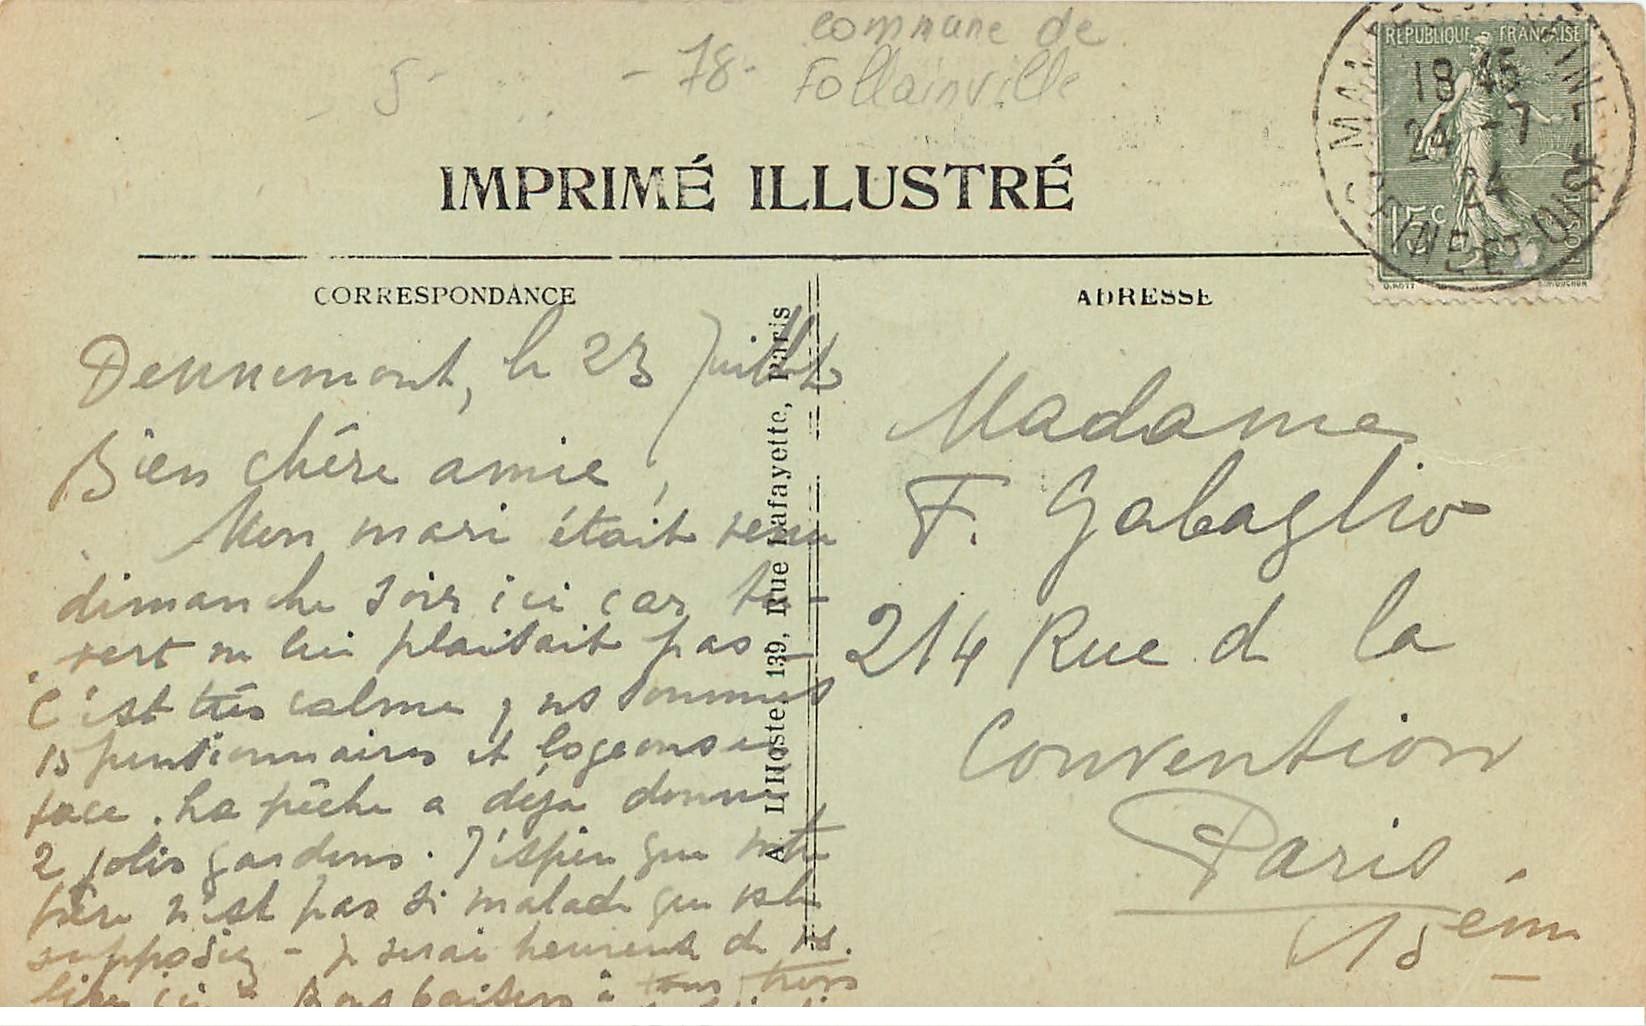 commune de
5- - 78- Follainville
IMPRIMÉ ILLUSTRÉ
REPUBLIQUE FRANÇAISE
18 45
24 -7
24
15c
SEINE ET OISE
O. ROTY
CORRESPONDANCE
ADRESSE
Dennemont, le 23 Juillet
Bien chère amie,
Mon mari était venu
dimanche soir ici car
vert ne lui plaisait pas -
C'est très calme, ns sommes
15 pensionnaires et logeons en
face. La pêche a déja donné
2 jolis gardons. J'espère que votre
père n'est pas si malade que vs le
supposiez - je serai heureuse de vs
Bons baisers à tous trois
A. L'Hoste, 139, Rue Lafayette, Paris
Madame
F. Gabaglio
214 Rue d la
Convention
Paris.
15ème